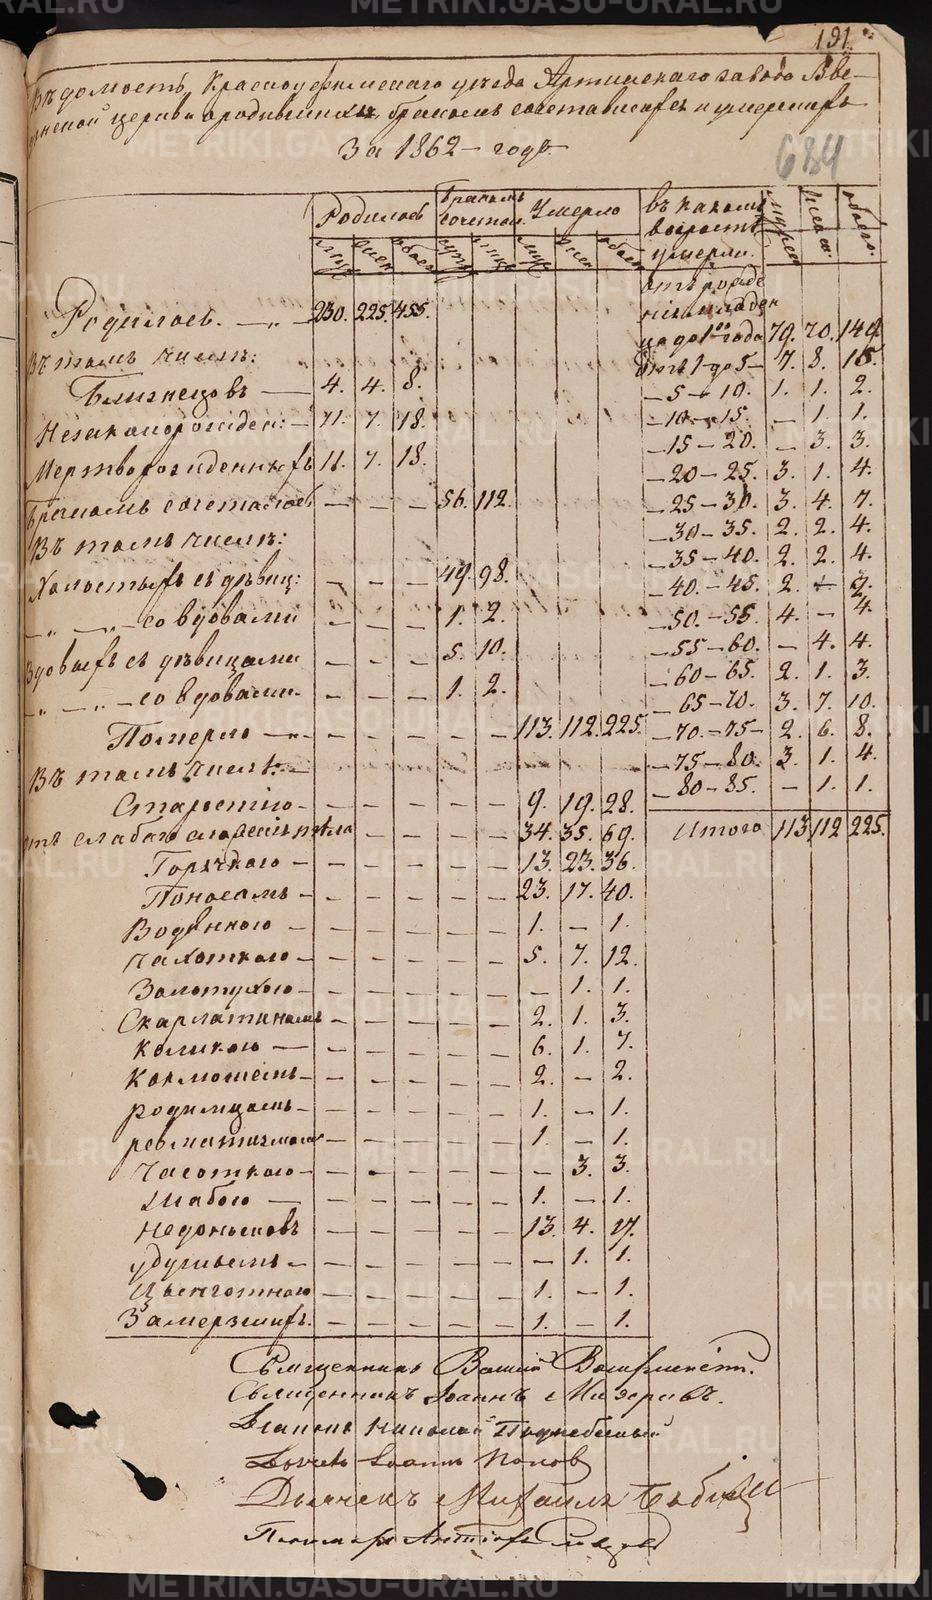 191.
Вѣдомость, Красноуфимскаго уѣзда Артинскаго завода Вве-
денской церкви о родившихся, бракомъ сочетавшихся и умершихъ
За 1862 - годъ.
684
Родилось Бракомъ сочетал. Умерло въ какомъ возрастѣ умерли. мужес. женск. обоего.
муж. жен. обоег. муж. жен. обоег.
отъ рожде
нія младен
Родилось. — „ — 230. 225. 455.
ца до 1го года 79. 70. 149.
Въ томъ числѣ:
отъ 1 до 5 - 7. 8. 15.
Близнецовъ — 4. 4. 8.
- 5 - 10. 1. 1. 2.
Незаконорожден: - 11. 7. 18.
- 10 - 15. - 1. 1.
- 15 - 20. - 3. 3.
Мертворожденныхъ 11. 7. 18.
- 20 - 25. 3. 1. 4.
Бракомъ сочеталось - - - 56. 112.
- 25 - 30. 3. 4. 7.
Въ томъ числѣ:
- 30 - 35. 2. 2. 4.
- 35 - 40. 2. 2. 4.
Холостыхъ съ дѣвиц: - - - 49. 98.
- 40. - 45. 2. - 2.
- „ - „ - со вдовами - - - 1. 2.
- 50. - 55. 4. - 4.
Вдовыхъ съ дѣвицами - - - 5. 10.
- 55 - 60. - 4. 4.
- 60 - 65. 2. 1. 3.
- „ - „ - со вдовами. - - - 1. 2.
- 65 - 70. 3. 7. 10.
Померло - „ - - - - - - 113. 112. 225.
- 70. - 75 - 2. 6. 8.
Въ томъ числѣ: -
- 75 - 80. 3. 1. 4.
- 80 - 85. - 1. 1.
Старостію - - - - - - 9. 19. 28.
отъ слабаго сложенія тѣла - - - - 34. 35. 69.
Итого 113. 112 225.
Горячкою - - - - - - 13. 23. 36.
Поносомъ - - - - - - 23. 17. 40.
Водянкою - - - - - - 1. - 1.
Чахоткою - - - - - - 5. 7. 12.
Золотухою - - - - - - - 1. 1.
Скарлатиномъ - - - - - 2. 1. 3.
Коликою - - - - - - 6. 1. 7.
Коклюшемъ - - - - - - 2. - 2.
родимцомъ - - - - - - 1. - 1.
ревматизмомъ - - - - - 1. - 1.
Чесоткою - - - - - - - 3. 3.
Жабою - - - - - - 1. - 1.
Недоносковъ - - - - - 13. 4. 17.
удушьемъ - - - - - - - 1. 1.
Цынготною - - - - - 1. - 1.
Замерзшихъ. - - - - - 1. - 1.
Священникъ
Священникъ Іоаннъ Мизеровъ.
Діаконъ Николай Поднебесный
Іоаннъ Поповъ
Дьячекъ Михаилъ
Пономарь
METRIKI.GASO-URAL.RU